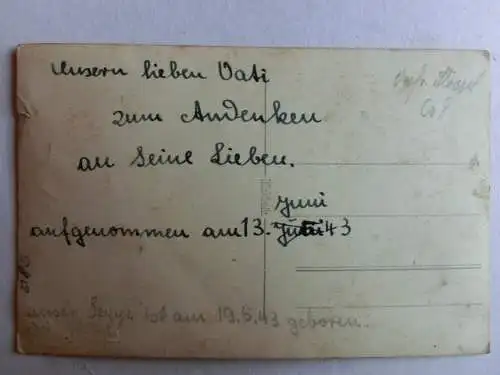 Unsern lieben Vati
zum Andenken
an seine Lieben.
Juni
aufgenommen am 13. Juni 43
unser ist am 19.5.43 geboren.